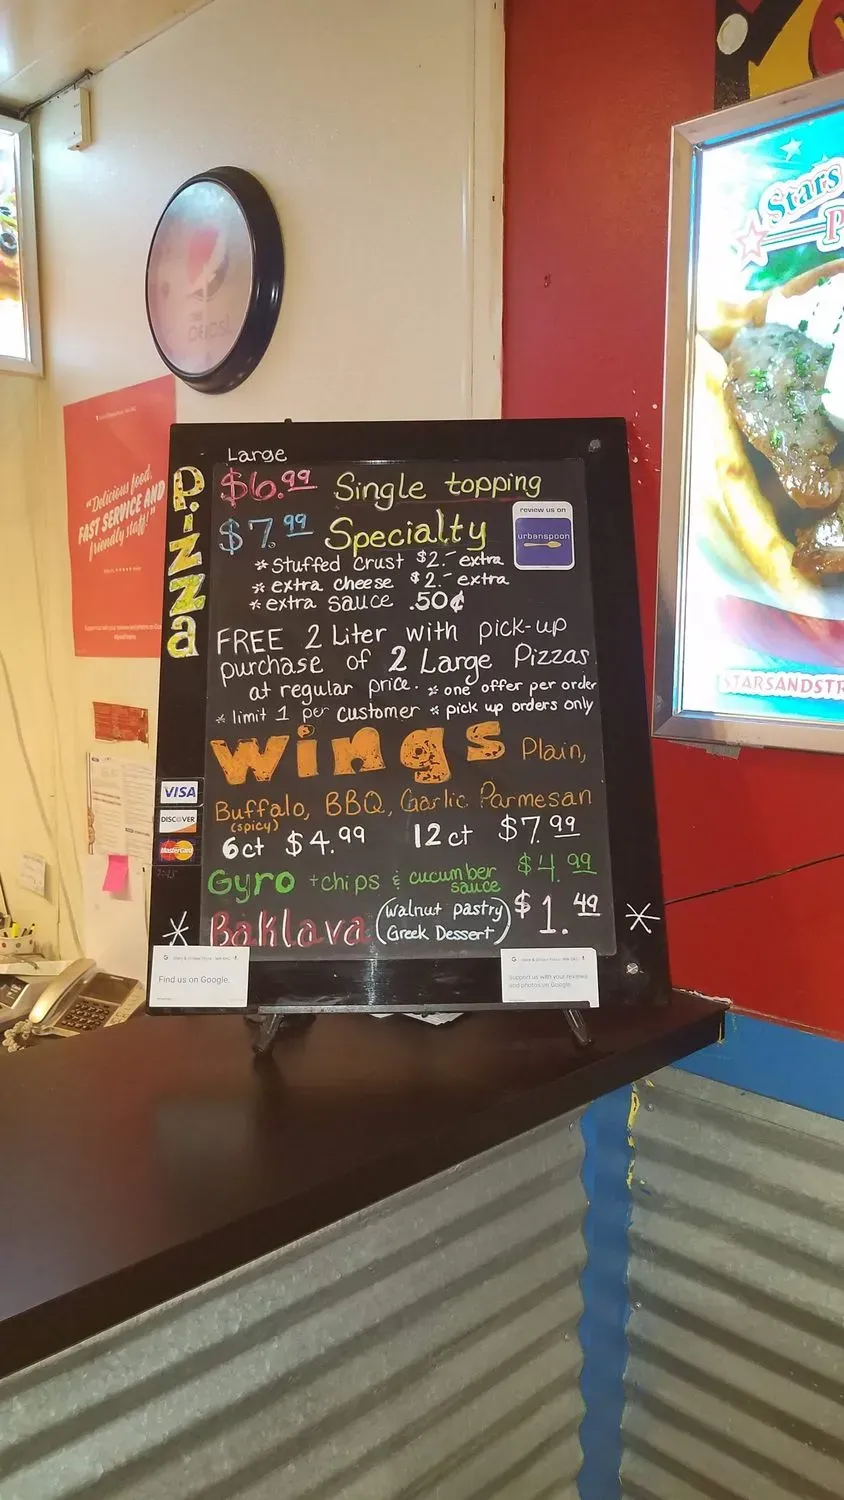 Large
Pizza
$6.99 Single topping
$7.99 Specialty
review us on
urbanspoon
* Stuffed Crust $2.- extra
* extra cheese $2.- extra
* extra sauce .50¢
FREE 2 Liter with pick-up
purchase of 2 Large Pizzas
at regular price. * one offer per order
* limit 1 per customer * pick up orders only
Wings Plain,
Buffalo, BBQ, Garlic Parmesan
(spicy)
6ct $4.99 12ct $7.99
Gyro + chips & cucumber sauce $4.99
* Baklava (Walnut pastry Greek Dessert) $1.49 *
VISA
DISCOVER
MasterCard
Find us on Google.
Support us with your reviews
and photos on Google.
"Delicious food,
FAST SERVICE AND
friendly staff!"
pepsi
Stars
P
STARSANDSTR